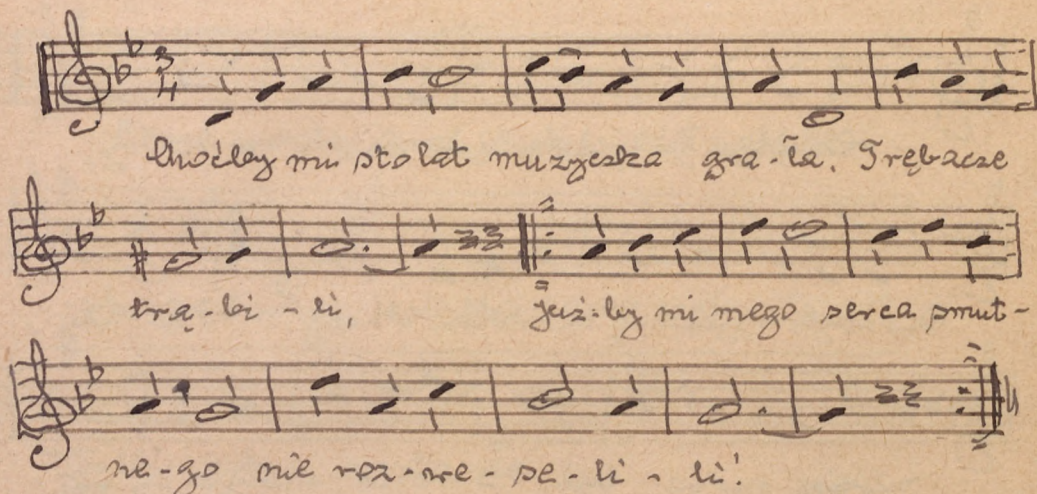 3/4
Choćby mi sto lat muzyczka gra-ła. Trębacze
trą-bi-li, już-by mi mego serca smut-
ne-go nie roz-we-se-li-li!